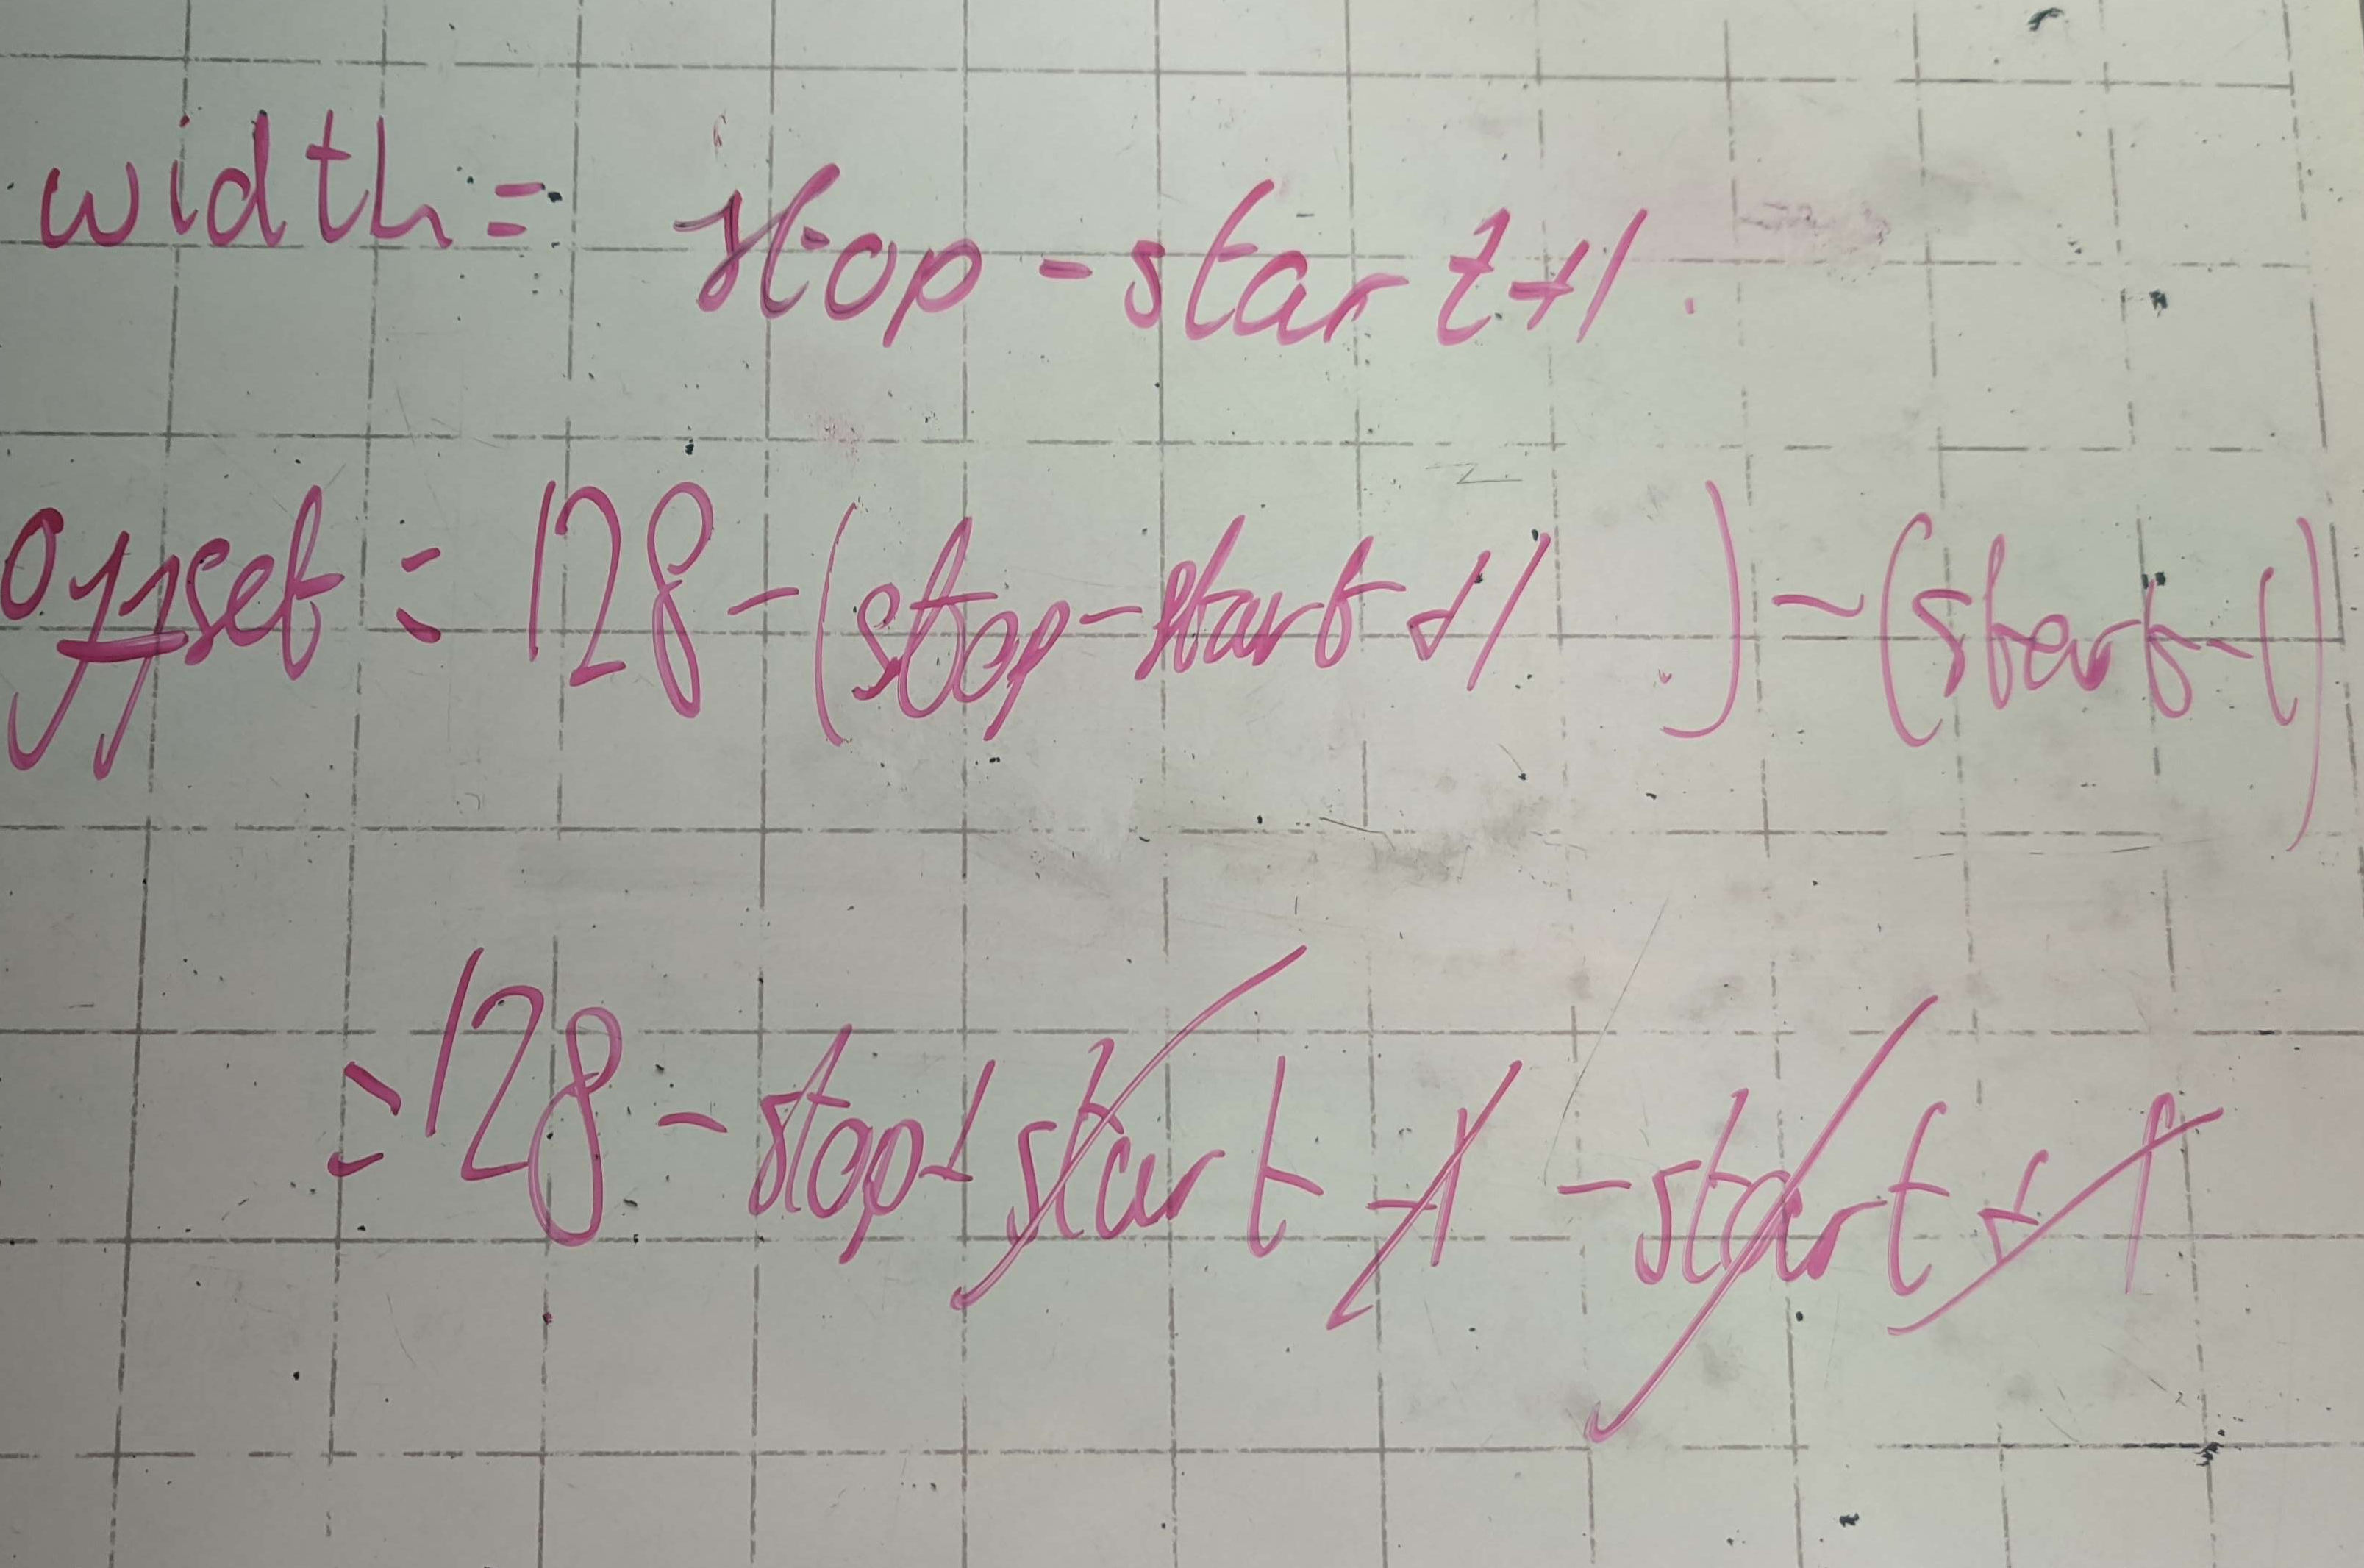 width = stop - start + 1
offset = 128 - (stop - start + 1) - (start - 1)
= 128 - stop + start - 1 - start + 1